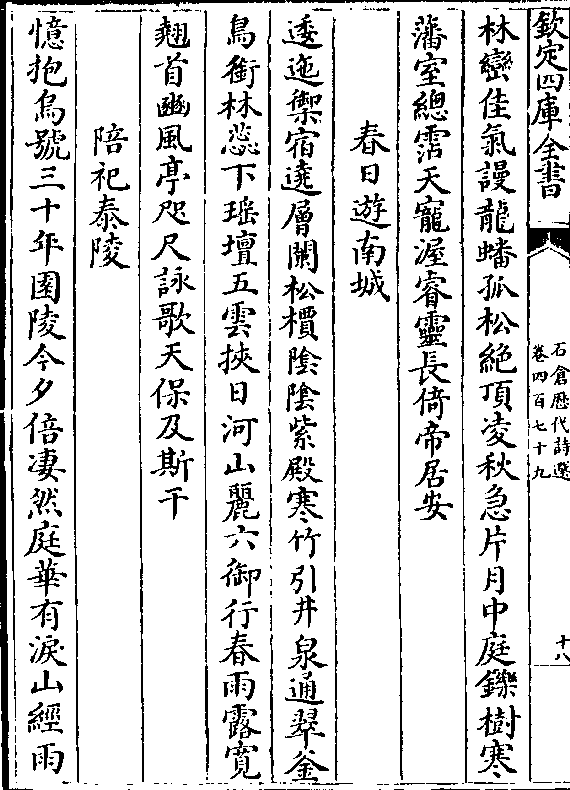 欽定四庫全書
石倉歴代詩選
卷四百七十九
十八
林巒佳氣謾龍蟠孤松絶頂凌秋急片月中庭鑠樹寒
藩室總霑天寵渥睿靈長倚帝居安
春日遊南城
逶迤禦宿遶層闌松檟陰陰紫殿寒竹引井泉通翠釜
鳥銜林蕊下瑶壇五雲挾日河山麗六御行春雨露寛
翹首豳風亭咫尺詠歌天保及斯干
陪祀泰陵
憶抱烏號三十年園陵今夕倍凄然庭華有淚山經雨